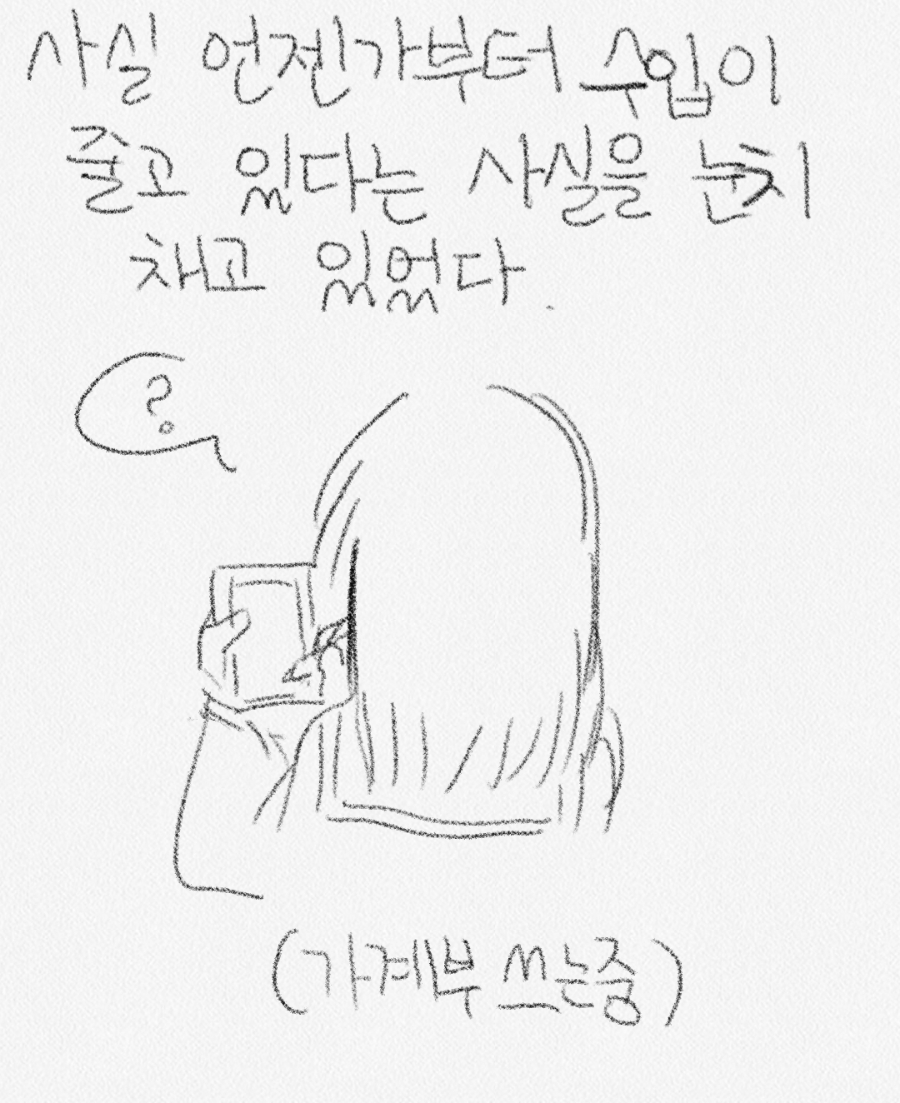 사실 언젠가부터 수입이
줄고 있다는 사실을 눈치
채고 있었다.
?
(가계부 쓰는중)